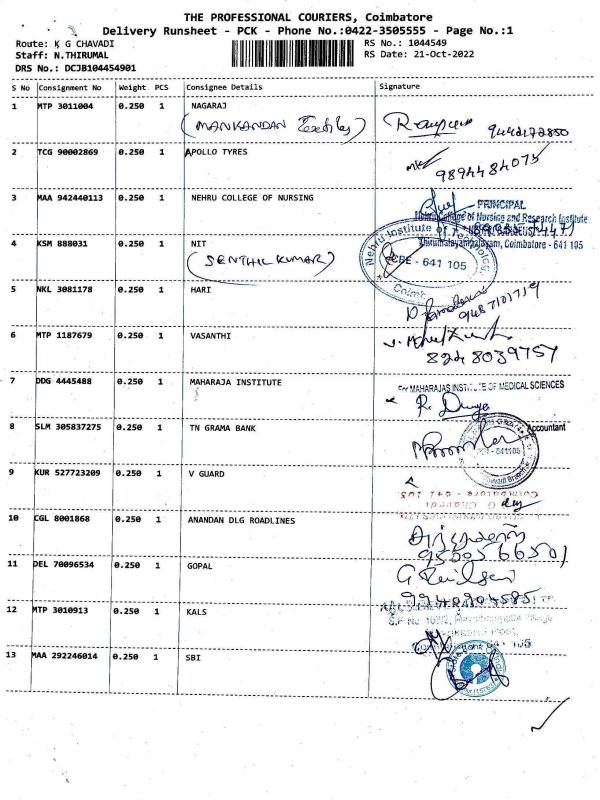 THE PROFESSIONAL COURIERS, Coimbatore
Delivery Runsheet - PCK - Phone No.:0422-3505555 - Page No.:1
Route: K G CHAVADI
RS No.: 1044549
Staff: N.THIRUMAL
RS Date: 21-Oct-2022
DRS No.: DCJB104454901
S No Consignment No Weight PCS Consignee Details Signature
1 MTP 3011004 0.250 1 NAGARAJ
(MANIKANDAN
9442172850
2 TCG 90002869 0.250 1 APOLLO TYRES
9894484075
3 MAA 942440113 0.250 1 NEHRU COLLEGE OF NURSING
PRINCIPAL
Nehru College of Nursing and Research Institute
Thirumalayampalayam, Coimbatore - 641 105
4 KSM 888031 0.250 1 NIT
(SENTHIL KUMAR)
Nehru Institute of
CBE - 641 105
5 NKL 3081178 0.250 1 HARI
6 MTP 1187679 0.250 1 VASANTHI
8248039757
7 DDG 4445488 0.250 1 MAHARAJA INSTITUTE
For MAHARAJAS INSTITUTE OF MEDICAL SCIENCES
R.
8 SLM 305837275 0.250 1 TN GRAMA BANK
Accountant
9 KUR 527723209 0.250 1 V GUARD
Coimbatore - 641 105
10 CGL 8001868 0.250 1 ANANDAN DLG ROADLINES
9500566501
11 DEL 70096534 0.250 1 GOPAL
9940904585
12 MTP 3010913 0.250 1 KALS
105
13 MAA 292246014 0.250 1 SBI